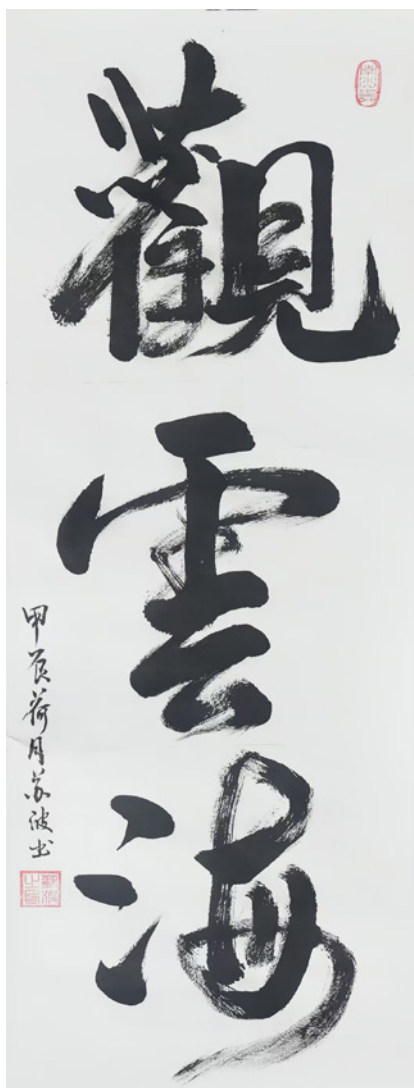 觀雲海
甲辰荷月苏波书